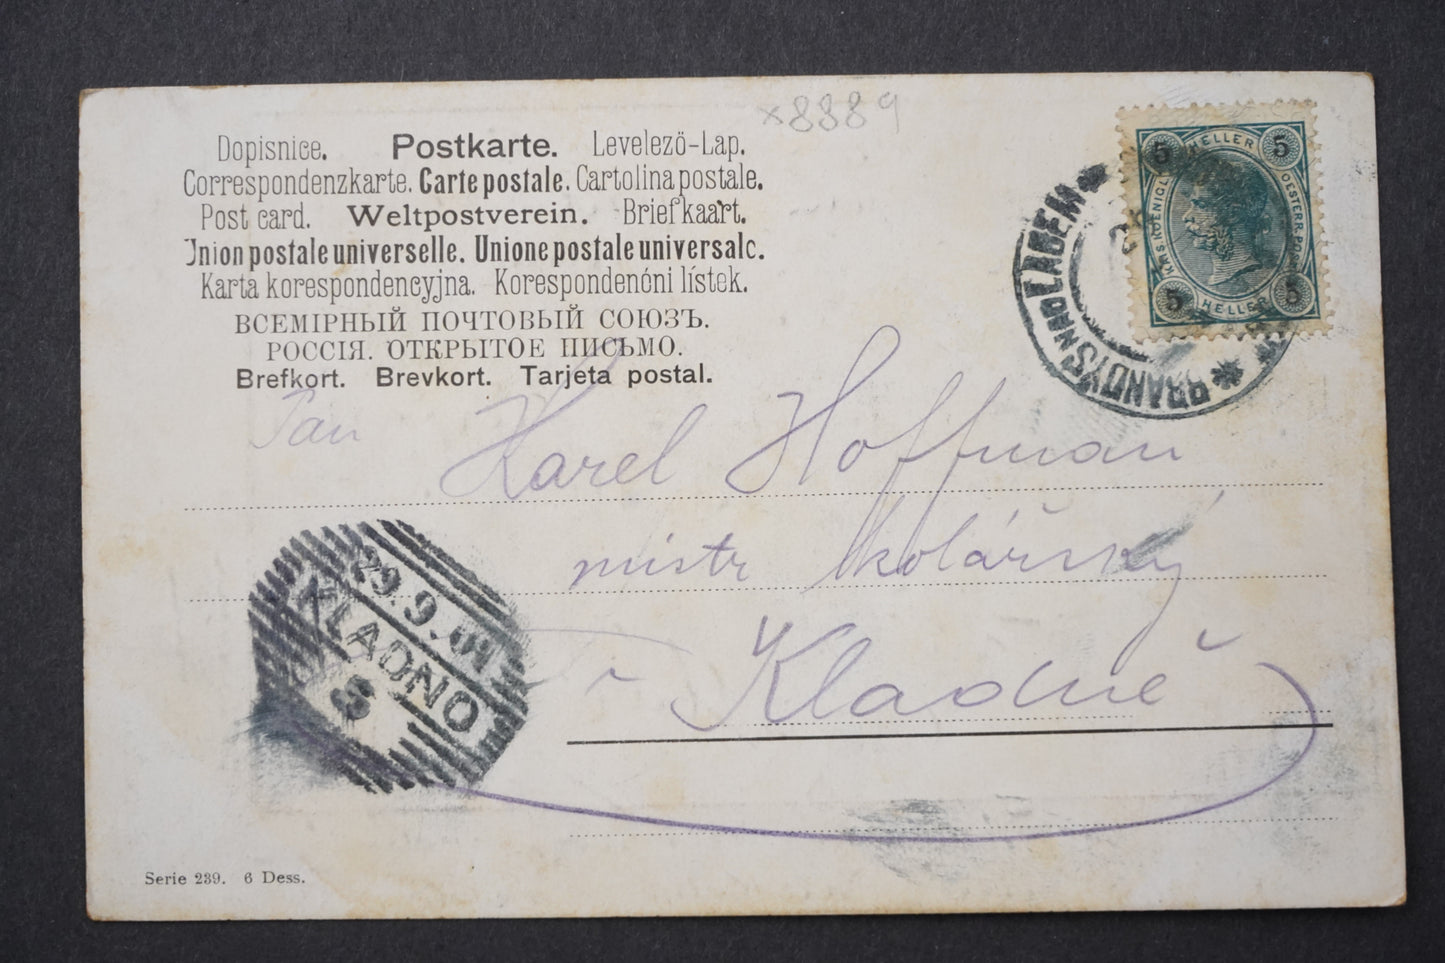 x8889
Dopisnice. Postkarte. Levelezö-Lap.
Correspondenzkarte. Carte postale. Cartolina postale.
Post card. Weltpostverein. Briefkaart.
Union postale universelle. Unione postale universale.
Karta korespondencyjna. Korespondenční lístek.
ВСЕМІРНЫЙ ПОЧТОВЫЙ СОЮЗЪ.
РОССІЯ. ОТКРЫТОЕ ПИСЬМО.
Brefkort. Brevkort. Tarjeta postal.
5 HELLER 5
5 HELLER 5
BRANDÝS NAD LABEM
Pan
Karel Hoffman
mistr kolářský
Kladně
29.9.
KLADNO
Serie 239. 6 Dess.